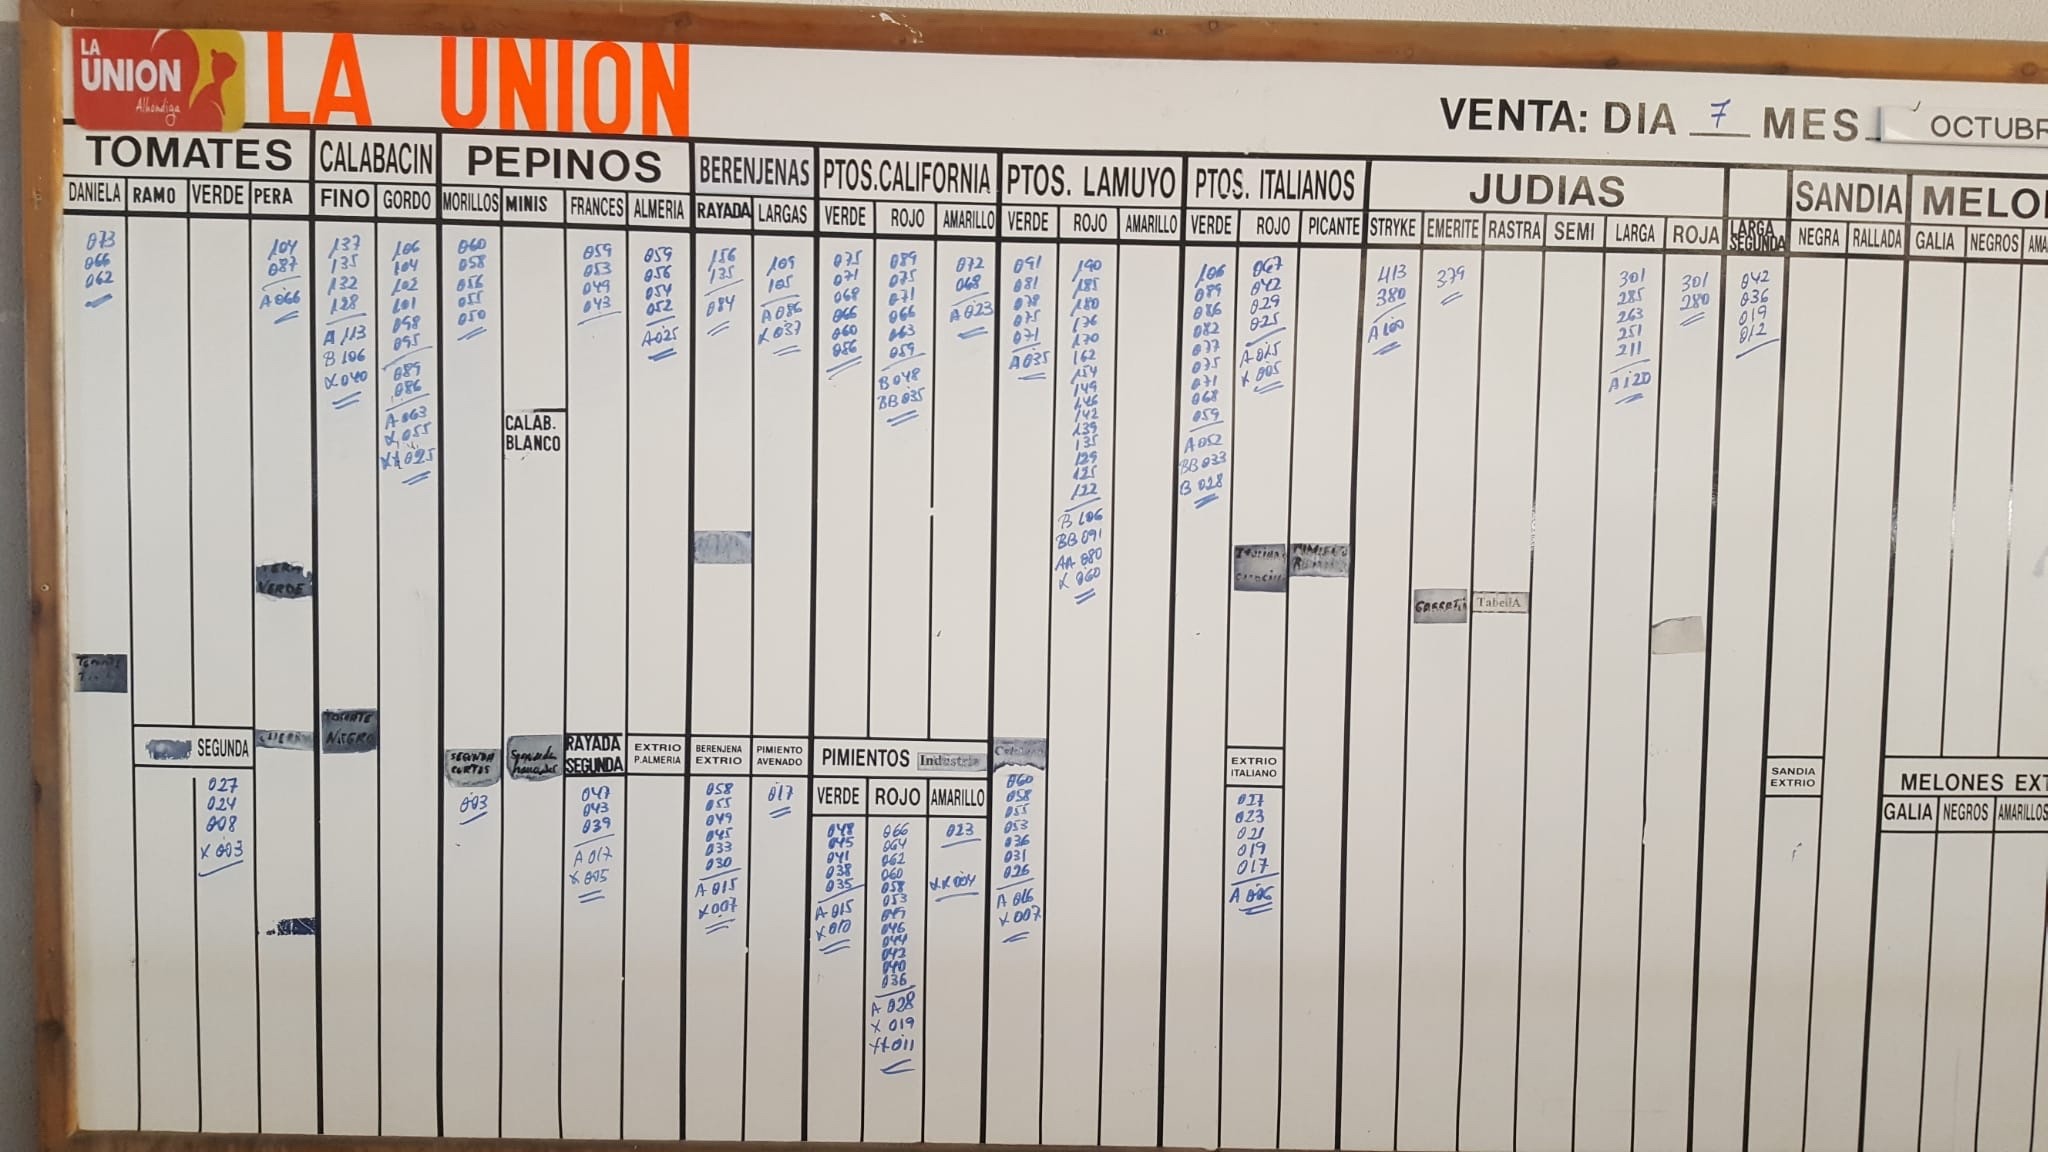 LA
UNION
Alhondiga
LA UNION
VENTA: DIA 7 MES OCTUBR
TOMATES
DANIELA RAMO VERDE PERA
CALABACIN
FINO GORDO
PEPINOS
MORILLOS MINIS FRANCES ALMERIA
BERENJENAS
RAYADA LARGAS
PTOS.CALIFORNIA
VERDE ROJO AMARILLO
PTOS. LAMUYO
VERDE ROJO AMARILLO
PTOS. ITALIANOS
VERDE ROJO PICANTE
JUDIAS
STRYKE EMERITE RASTRA SEMI LARGA ROJA
LARGA
SEGUNDA
SANDIA
NEGRA RALLADA
MELO
GALIA NEGROS AMA
073
066
062
104
087
A 066
137
135
132
128
A 113
B 106
X 040
106
104
102
101
098
095
089
086
A 063
X 055
XX 025
060
058
056
055
050
CALAB.
BLANCO
059
053
049
043
059
056
054
052
A 025
156
135
084
109
105
A 086
X 037
075
071
068
066
060
056
089
075
071
066
063
059
B 048
BB 035
072
068
A 023
091
081
078
075
071
A 035
190
185
180
176
170
162
154
149
146
142
139
135
129
125
122
B 106
BB 091
AA 080
X 060
106
089
086
082
077
075
071
068
059
A 052
BB 033
B 028
067
042
029
025
A 015
X 005
413
380
A 100
379
301
285
263
251
211
A 120
301
280
042
036
019
012
VERDE
TOMATE
NEGRO
TabellA
SEGUNDA
027
024
008
X 003
SEGUNDA
CORTOS
003
Segunda
RAYADA
SEGUNDA
047
043
039
A 017
X 005
EXTRIO
P.ALMERIA
BERENJENA
EXTRIO
058
055
049
045
033
030
A 015
X 007
PIMIENTO
AVENADO
017
PIMIENTOS Industria
VERDE ROJO AMARILLO
048
045
041
038
035
A 015
X 010
066
064
062
060
058
053
049
046
044
042
040
036
A 028
X 019
XX 011
023
XX 004
060
058
055
053
036
031
026
A 016
X 007
EXTRIO
ITALIANO
027
023
021
019
017
A 006
SANDIA
EXTRIO
MELONES EXT
GALIA NEGROS AMARILLOS